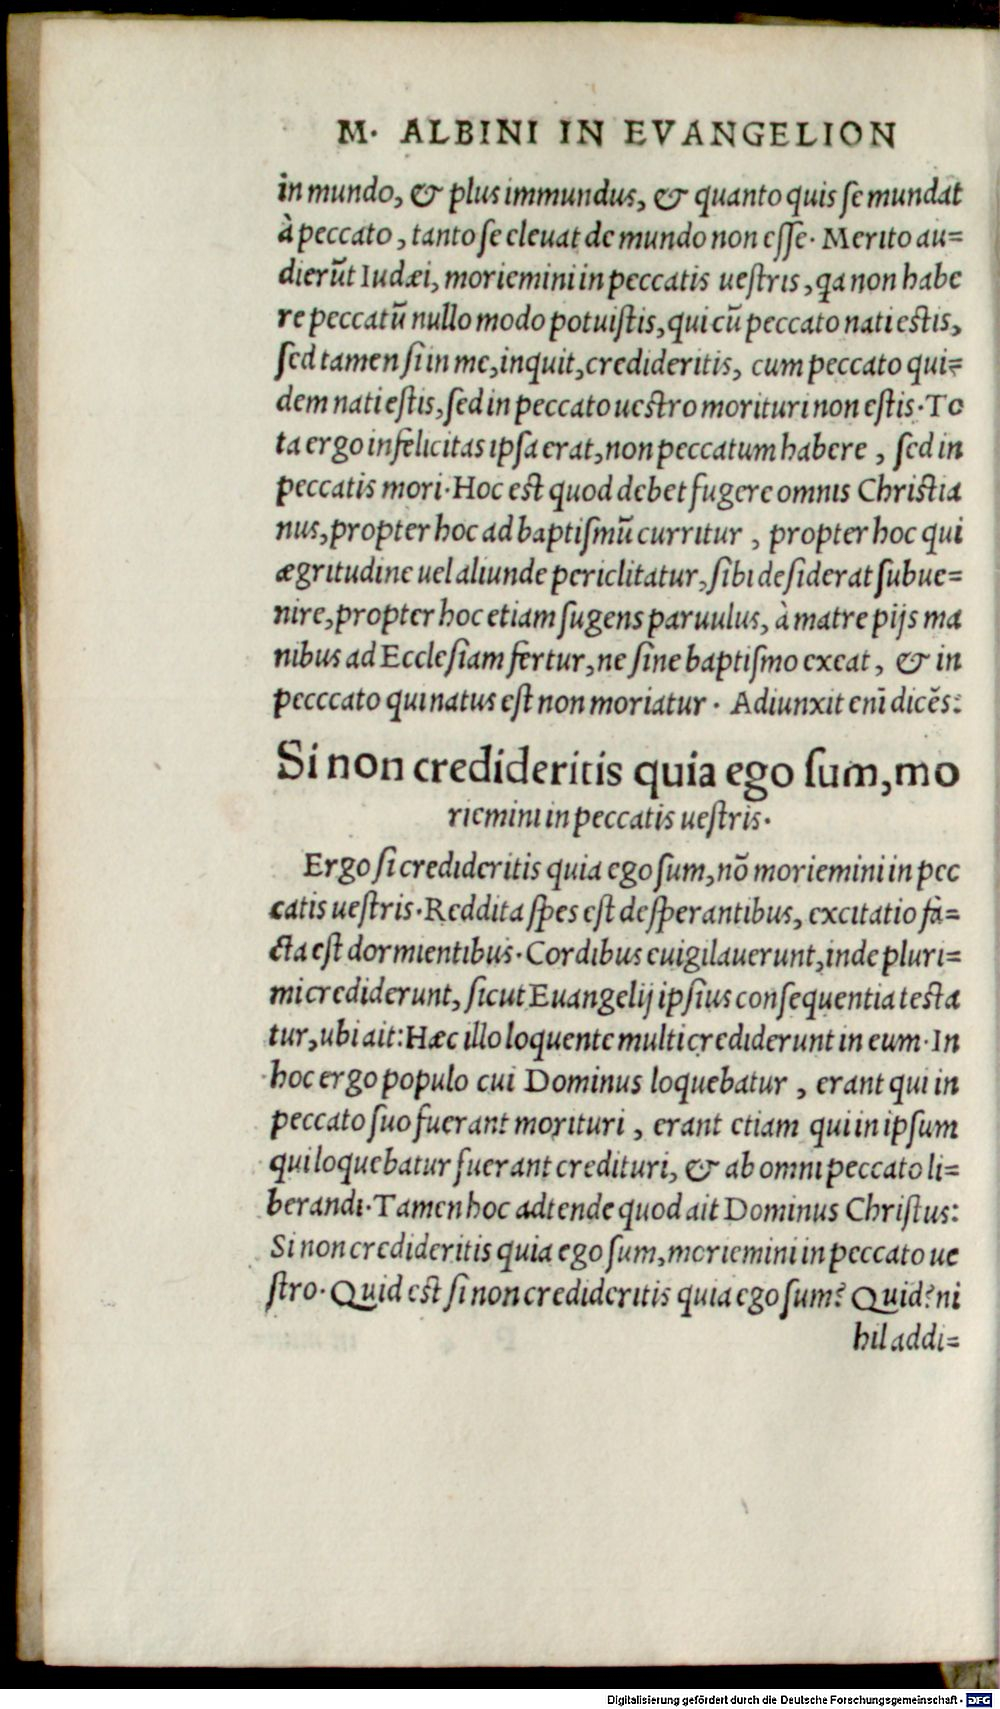 M. ALBINI IN EVANGELION
in mundo, & plus immundus, & quanto quis se mundat
à peccato, tanto se eleuat de mundo non esse. Merito au=
dierūt Iudæi, moriemini in peccatis uestris, qa non habe
re peccatū nullo modo potuistis, qui cū peccato nati estis,
sed tamen si in me, inquit, credideritis, cum peccato qui=
dem nati estis, sed in peccato uestro morituri non estis. To
ta ergo infelicitas ipsa erat, non peccatum habere, sed in
peccatis mori. Hoc est quod debet fugere omnis Christia
nus, propter hoc ad baptismū curritur, propter hoc qui
ægritudine uel aliunde periclitatur, sibi desiderat subue=
nire, propter hoc etiam sugens paruulus, à matre pijs ma
nibus ad Ecclesiam fertur, ne sine baptismo exeat, & in
pecccato qui natus est non moriatur. Adiunxit enī dicēs:
Si non credideritis quia ego sum, mo
riemini in peccatis uestris.
Ergo si credideritis quia ego sum, nō moriemini in pec
catis uestris. Reddita spes est desperantibus, excitatio fa=
cta est dormientibus. Cordibus euigilauerunt, inde pluri=
mi crediderunt, sicut Euangelij ipsius consequentia testa
tur, ubi ait: Hæc illo loquente multi crediderunt in eum. In
hoc ergo populo cui Dominus loquebatur, erant qui in
peccato suo fuerant morituri, erant etiam qui in ipsum
qui loquebatur fuerant credituri, & ab omni peccato li=
berandi. Tamen hoc adtende quod ait Dominus Christus:
Si non credideritis quia ego sum, moriemini in peccato ue
stro. Quid est si non credideritis quia ego sum? Quid? ni
hil addi=
Digitalisierung gefördert durch die Deutsche Forschungsgemeinschaft - DFG